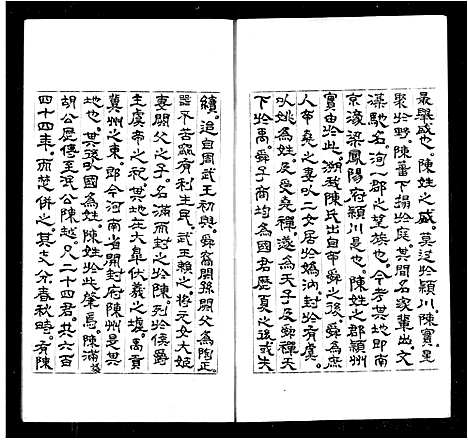 最舉盛也。陳姓之盛。莫過於潁川。陳寔星
聚於野。陳蕃下榻於庭。其間名家輩出。文
藻馳名。洵一郡之望族也。今考其地即南
京濠梁鳳陽府潁川是也。陳姓之郡潁州
實由於此。溯我陳氏出自帝舜之後。舜為庶
人。帝堯之妻以二女居於媯汭。封於有虞。
以姚為姓。及受堯禪。遂為天子。及舜禪天
下於禹。舜子商均為國君。歷夏之後。或失
續。迨自周武王初興。舜裔閼孫閼父為陶正。
器不苦窳。有利生民。武王賴之。將元女大姬
妻閼父之子名滿而封之於陳。列於侯爵。
主虞帝之祀。其地在大皞伏羲之墟。禹貢
冀州之東。即今河南省開封府陳州是其
地也。其後以國為姓。陳姓於此肇焉。陳滿
胡公。歷傳至泯公陳越。凡二十四君。共六百
四十四年。而楚併之。其支分春秋時。有陳